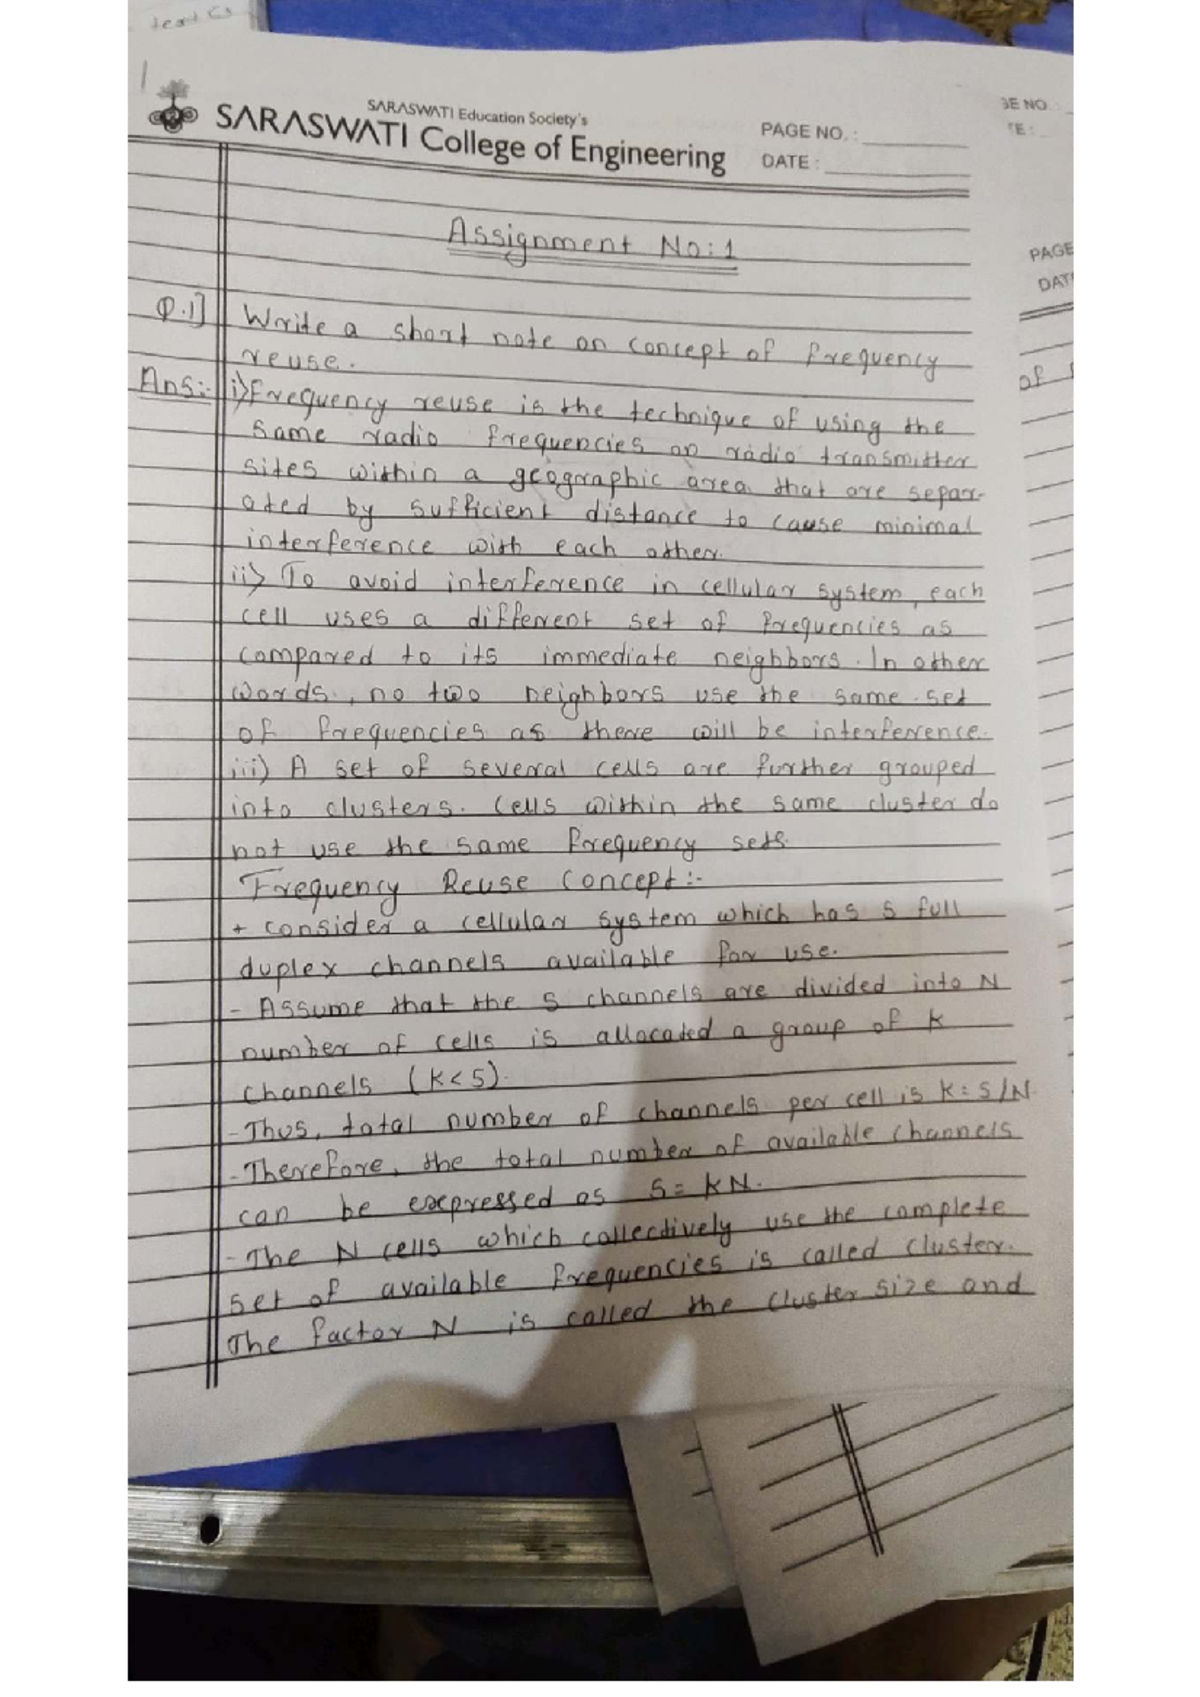 text cs
SARASWATI Education Society's
SARASWATI College of Engineering
PAGE NO. :
DATE :
Assignment No:1
Q.1] Write a short note on concept of frequency
reuse.
Ans:- i) Frequency reuse is the technique of using the
same radio frequencies on radio transmitter
sites within a geographic area that are separ-
ated by sufficient distance to cause minimal
interference with each other.
ii) To avoid interference in cellular system, each
cell uses a different set of frequencies as
compared to its immediate neighbors. In other
words, no two neighbors use the same set
of frequencies as there will be interference.
iii) A set of several cells are further grouped
into clusters. Cells within the same cluster do
not use the same frequency sets.
Frequency Reuse Concept:-
+ consider a cellular system which has s full
duplex channels available for use.
- Assume that the s channels are divided into N
number of cells is allocated a group of k
channels (k<s).
- Thus, total number of channels per cell is k=s/N.
- Therefore, the total number of available channels
can be expressed as s=kN.
- The N cells which collectively use the complete
set of available frequencies is called cluster.
The factor N is called the cluster size and
GE NO.
TE :
PAGE
DAT
of